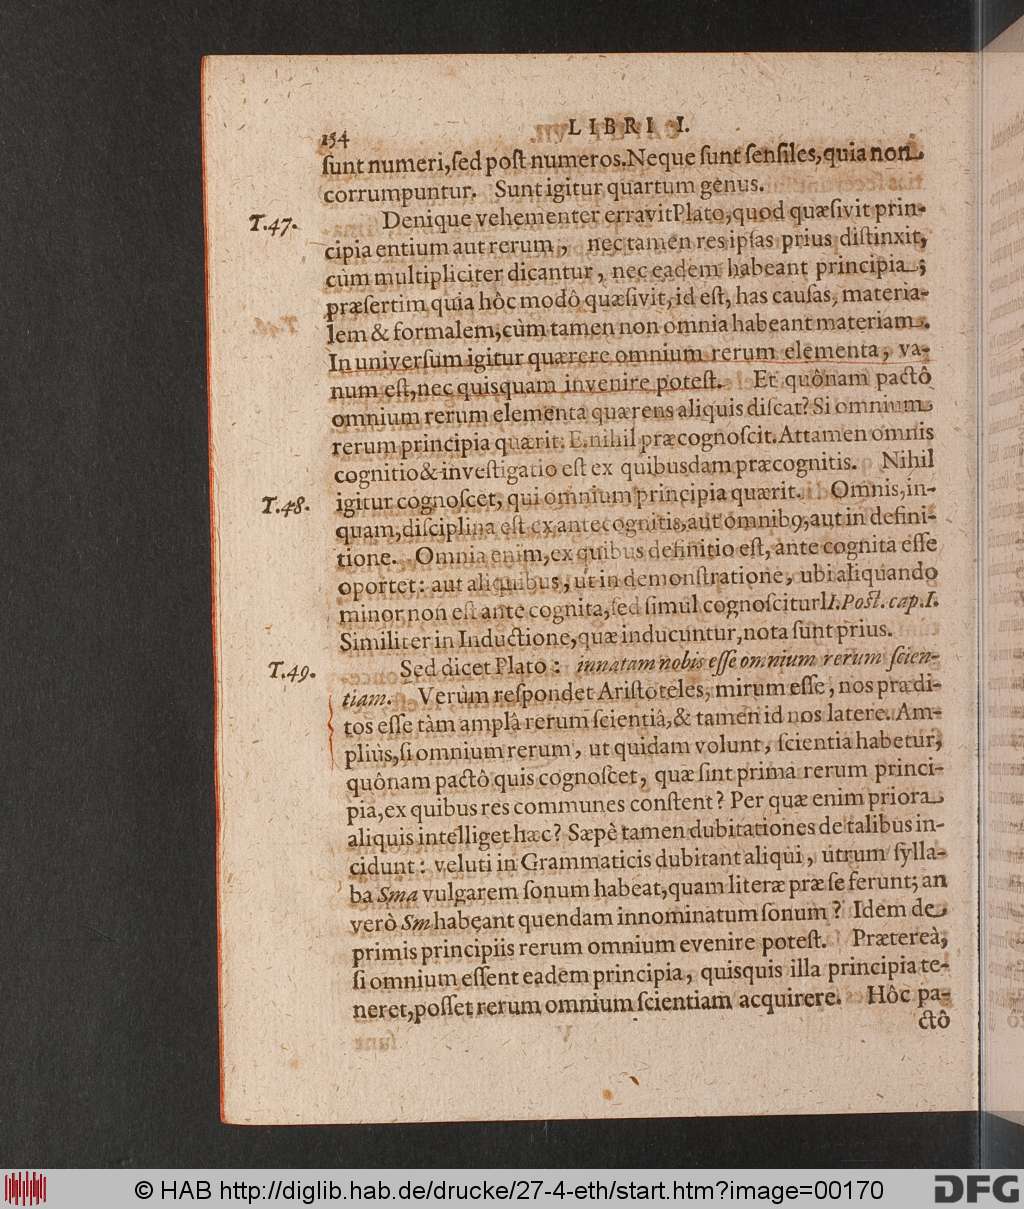 154
LIBRI I.
ſunt numeri, ſed poſt numeros. Neque ſunt ſenſiles, quia non
corrumpuntur. Sunt igitur quartum genus.
T.47. Denique vehementer erravit Plato, quod quæſivit prin-
cipia entium aut rerum, nec tamen res ipſas prius diſtinxit,
cùm multipliciter dicantur, nec eadem habeant principia;
præſertim quia hôc modô quæſivit, id eſt, has cauſas, materia-
lem & formalem, cùm tamen non omnia habeant materiam.
In univerſum igitur quærere omnium rerum elementa, va-
num eſt, nec quisquam invenire poteſt. Et quônam pactô
omnium rerum elementa quærens aliquis diſcat? Si omnium
rerum principia quærit: E. nihil præcognoſcit. Attamen omnis
cognitio & inveſtigatio eſt ex quibusdam præcognitis. Nihil
T.48. igitur cognoſcet, qui omnium principia quærit. Omnis, in-
quam, diſciplina eſt ex antecognitis, aut omnibꝰ, aut in defini-
tione. Omnia enim, ex quibus definitio eſt, ante cognita eſſe
oportet: aut aliquibus, ut in demonſtratione, ubi aliquando
minor non eſt ante cognita, ſed ſimul cognoſcitur II. Poſt. cap. I.
Similiter in Inductione, quæ inducuntur, nota ſunt prius.
T.49. Sed dicet Plato: innatam nobis eſſe omnium rerum ſcien-
tiam. Verùm reſpondet Ariſtoteles, mirum eſſe, nos prædi-
tos eſſe tàm amplâ rerum ſcientiâ, & tamen id nos latere. Am-
plius, ſi omnium rerum, ut quidam volunt, ſcientia habetur,
quônam pactô quis cognoſcet, quæ ſint prima rerum princi-
pia, ex quibus res communes conſtent? Per quæ enim priora
aliquis intelliget hæc? Sæpè tamen dubitationes de talibus in-
cidunt: veluti in Grammaticis dubitant aliqui, utrum ſylla-
ba Sma vulgarem ſonum habeat, quam literæ præ ſe ferunt; an
verò Sm habeant quendam innominatum ſonum? Idem de
primis principiis rerum omnium evenire poteſt. Prætereà,
ſi omnium eſſent eadem principia, quisquis illa principia te-
neret, poſſet rerum omnium ſcientiam acquirere. Hôc pa-
ctô
© HAB http://diglib.hab.de/drucke/27-4-eth/start.htm?image=00170
DFG